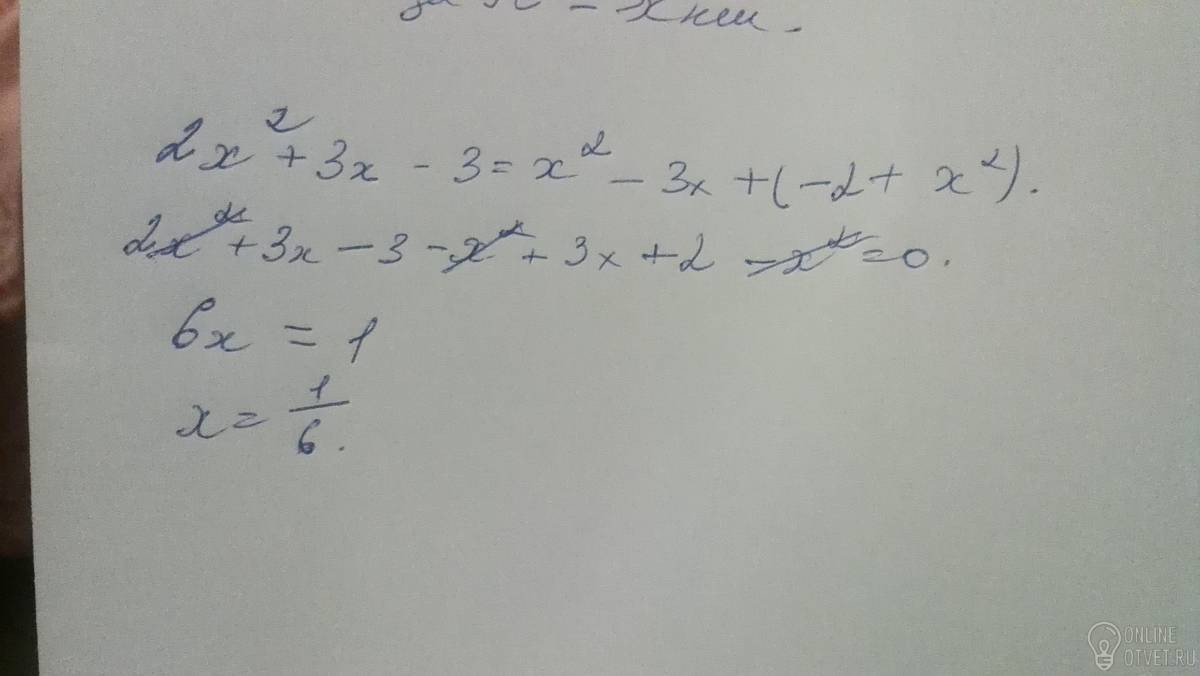 2x² + 3x - 3 = x² - 3x + (-2 + x²).
2x² + 3x - 3 - x² + 3x + 2 - x² = 0.
6x = 1
x = 1/6.
ONLINE
OTVET.RU